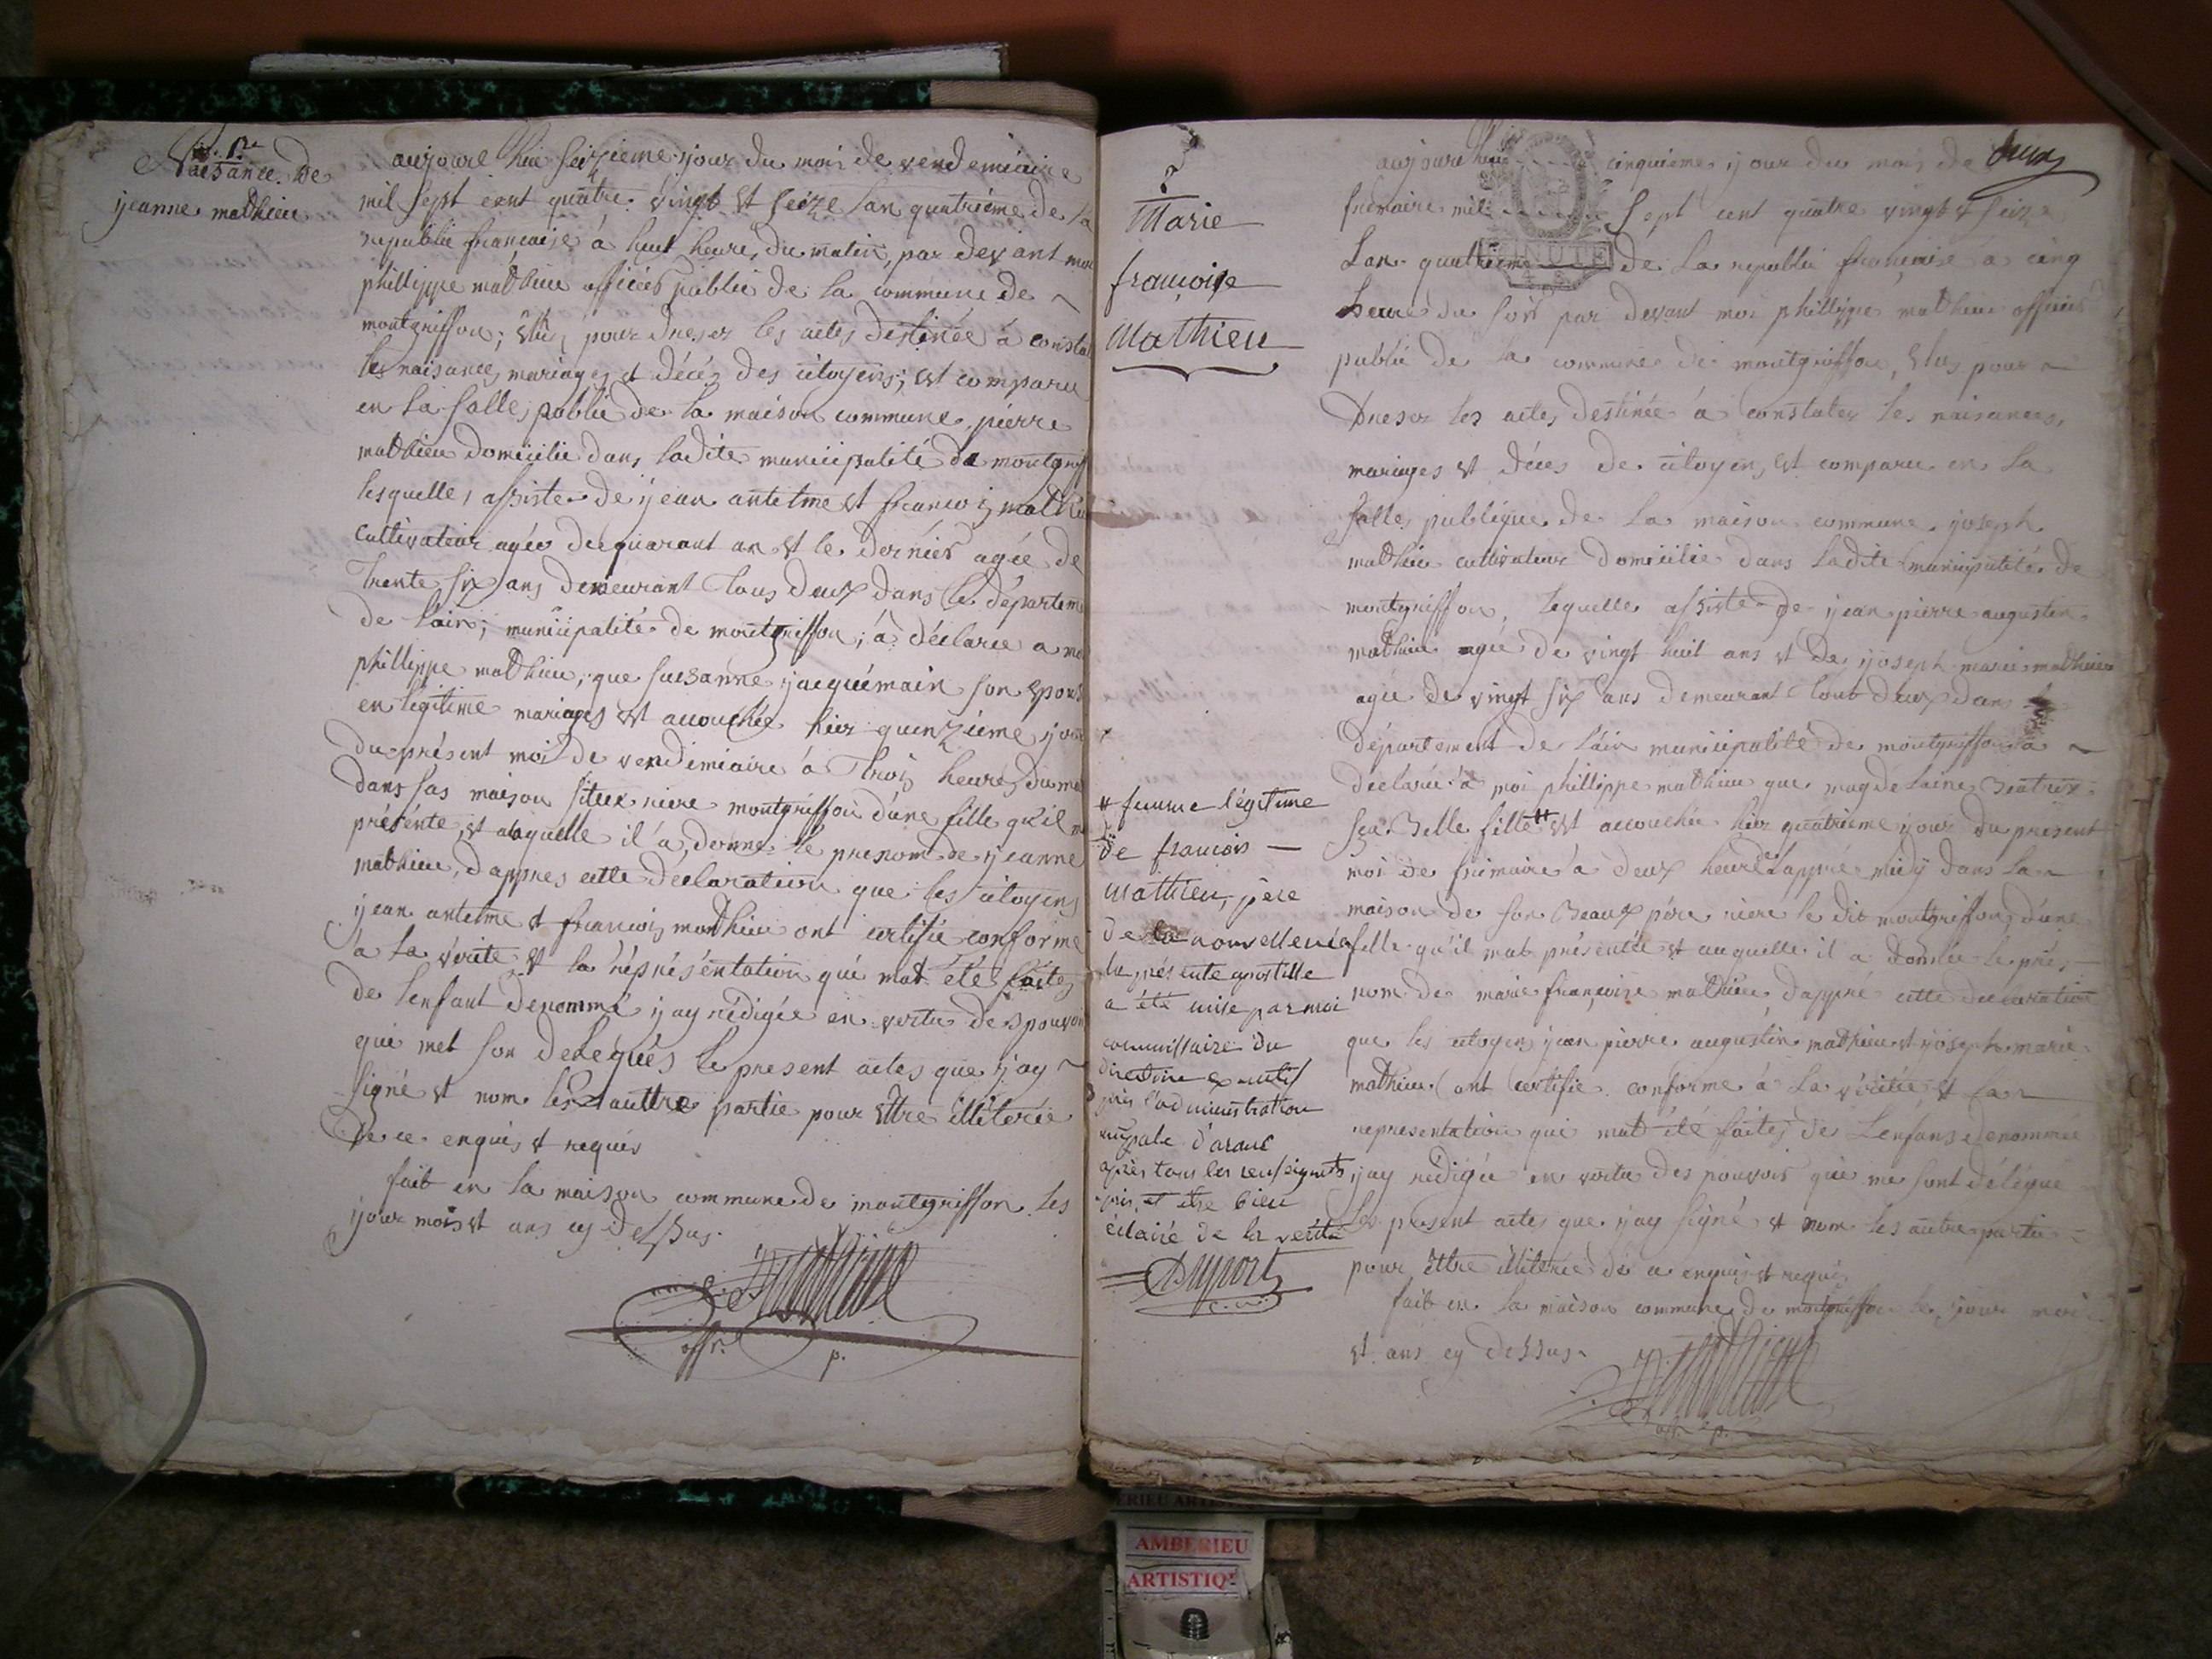 1re
Naisance de
jeanne mathieu
aujourd hui seizieme jour du moi de vendemiaire
mil sept cent quatre vingt et seize lan quatrieme de la
republie francaise à huit heure du matin, par devant moi
phillippe mathieu officier public de la commune de
montgriffon; élus pour dreser les actes destinée à constat
les naisances mariages et décés des citoyens; est comparu
en la salle public de la maison commune pierre
mathieu domicilie dans ladite municipalité de montgrif
lesquelles assiste de jean antelme et francois mathieu
cultivateur agée de quarant an et le dernier agée de
trente six ans demeurant tous deux dans le départeme
de lain; municipalité de montgriffon; à déclaree a moi
phillippe mathieu, que suesanne jacquémain son epous
en légitime mariages est acouchée hier quinzieme jour
du présent moi de vendemiaire à trois heures du ma
dans sas maison situex riere montgriffon d'une fille qu'il m
présente, et alaquelle il a donne le prenom de jeanne
mathieu, d'appres cette déclaration que les citoyens
jean antelme et francois mathieu ont certifié conforme
à la vérité et la répréséntation qui mat été faites
de lenfant denommé j'ay rédigée en vertu des pouvoi
qui met son delégués le present actes que j'ay
signé et nom les auttre partie pour ettre illiterée
de ce enquis et requis
fait en la maison commune de montgriffon les
jour mois et ans cy dessus
Mathieu
offr. p.
2
Marie
françoise
Mathieu
# femme légitime
de francois
Mathieu, père
de la nouvelle née
la présente apostille
a été mise par moi
commissaire du
directoire executif
près l'administration
mupale d'aranc
après tous les renseignmts
pris, et etre bien
éclairé de la vérité
Duport
c. m.
deux
aujourd hui cinquieme jour du mois de
frimaire mil sept cent quatre vingt et seize
Lan quatrieme de la republie francaise a cinq
MINUTE
heure du soir par devant moi phillippe mathieu officier
public de la commune de montgriffon, élus pour
Dreser les actes destinée à constater les naisances,
mariages et décés de citoyen, est comparu en la
salle publique de la maison commune joseph
mathieu cultivateur domicilie dans ladite municipalité de
montgriffon, lequelle assiste de jean pierre augustin
mathieu agée de vingt huit ans et de joseph marie mathieu
agée de vingt six ans demeurant tout deux dans le
département de l'ain municipalité de montgriffon a
déclaree à moi phillippe mathieu que magdelaine Beatrix
sa Belle fille # est acouchée hier quatrieme jour du présent
moi de frimaire à deux heure lappré midy dans la
maison de son Beaux pére riere le dit montgriffon d'une
fille qu'il mat présentée et auquelle il a donnée le pré
nom de marie françoise mathieu d'appré cette declaration
que les citoyens jean pierre augustin mathieu et joseph marie
mathieu ont certifie conforme à la véritée, et la
representation qui mat été faites de Lenfans denommée
j'ay rédigée en vertu des pouvoir qui me sont délégué
les présent actes que j'ay signé et nom les autre partie
pour ettre illiterée de ce enquis et requis
fait en la maison commune de montgriffon le jour moi
et ans cy dessus
Mathieu
offr. p.
AMBERIEU
ARTISTIQ